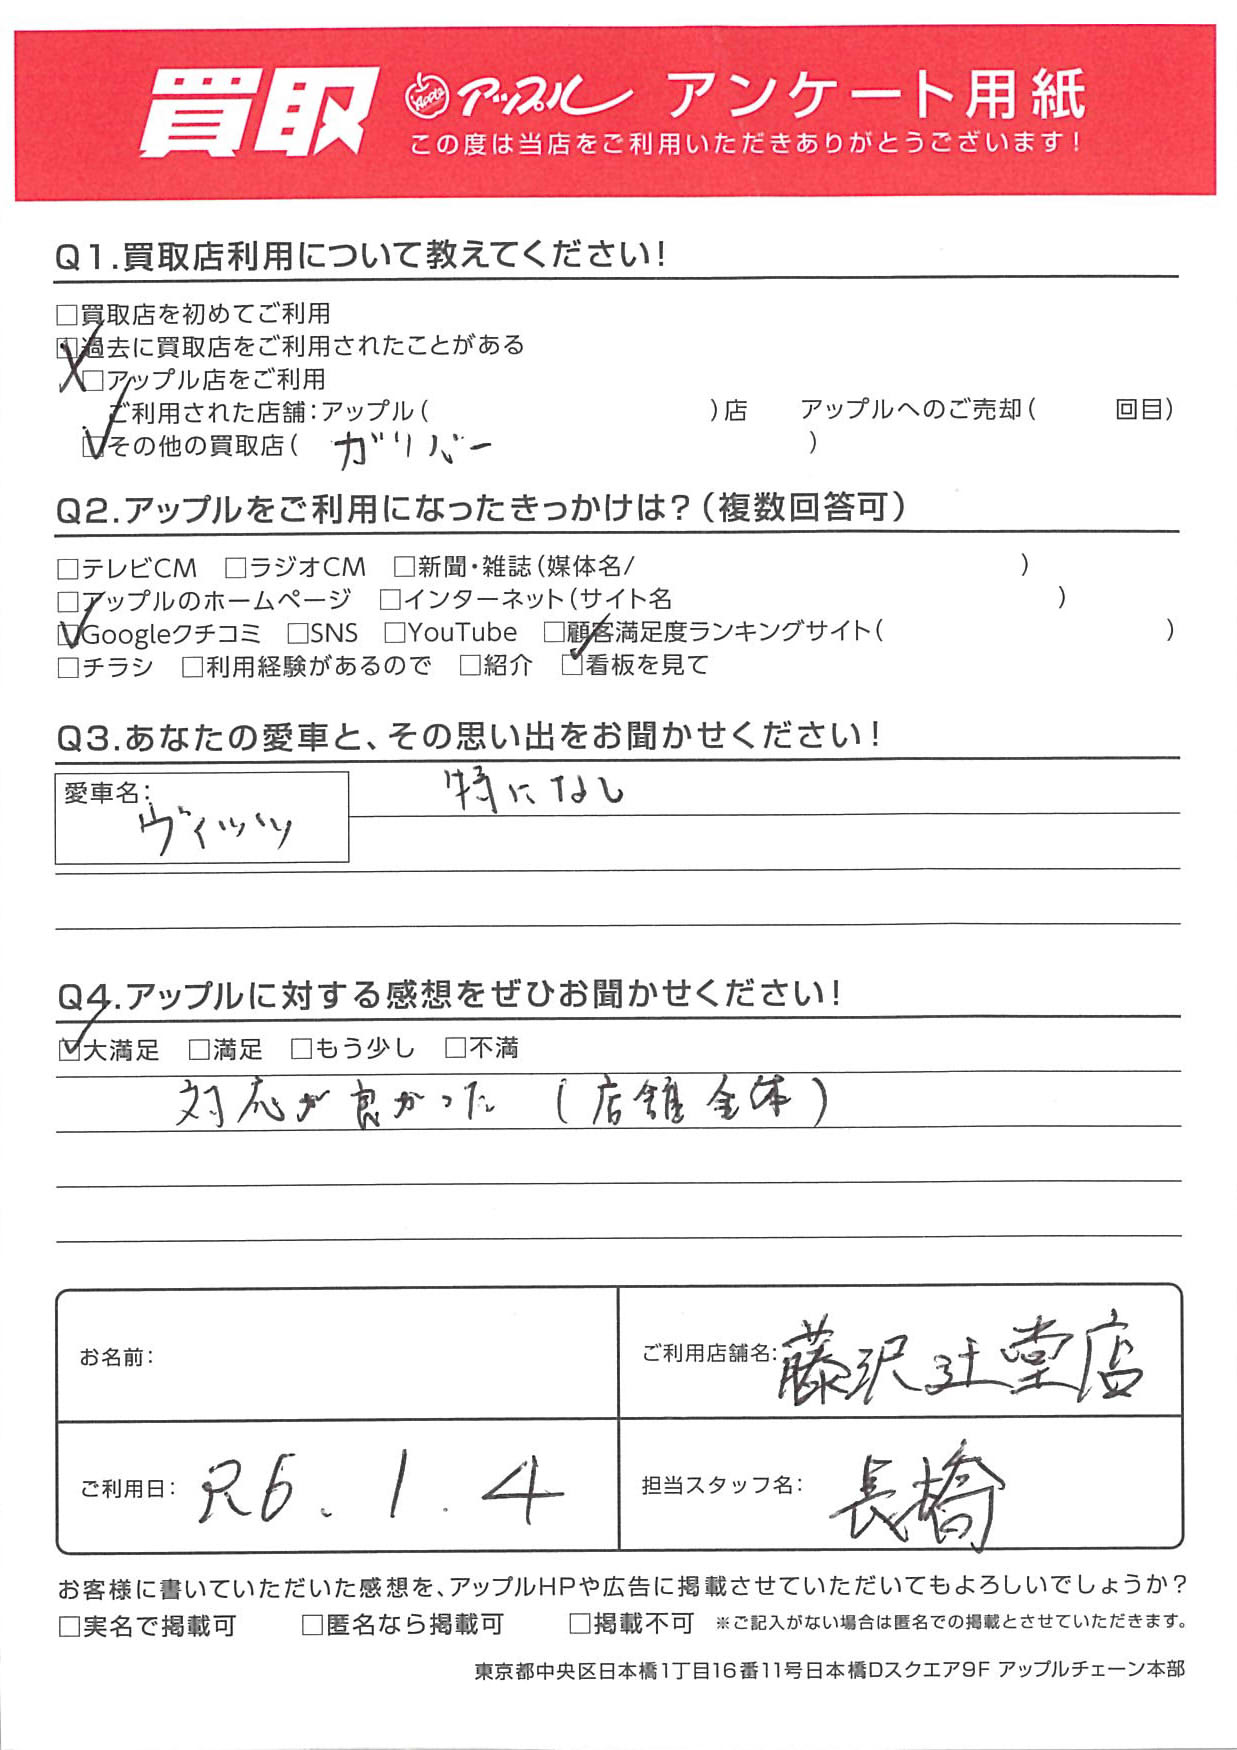 買取 Apple アップル アンケート用紙
この度は当店をご利用いただきありがとうございます！
Q1.買取店利用について教えてください！
□買取店を初めてご利用
☑過去に買取店をご利用されたことがある
□アップル店をご利用
ご利用された店舗：アップル（　）店　アップルへのご売却（　回目）
☑その他の買取店（ ガリバー ）
Q2.アップルをご利用になったきっかけは？（複数回答可）
□テレビCM □ラジオCM □新聞・雑誌（媒体名/　）
□アップルのホームページ □インターネット（サイト名　）
☑Googleクチコミ □SNS □YouTube □顧客満足度ランキングサイト（　）
□チラシ □利用経験があるので □紹介 ☑看板を見て
Q3.あなたの愛車と、その思い出をお聞かせください！
愛車名： ヴィッツ 特になし
Q4.アップルに対する感想をぜひお聞かせください！
☑大満足 □満足 □もう少し □不満
対応が良かった（店舗全体）
お名前： ご利用店舗名：藤沢辻堂店
ご利用日：R6.1.4 担当スタッフ名：長橋
お客様に書いていただいた感想を、アップルHPや広告に掲載させていただいてもよろしいでしょうか？
□実名で掲載可 □匿名なら掲載可 □掲載不可 ※ご記入がない場合は匿名での掲載とさせていただきます。
東京都中央区日本橋1丁目16番11号日本橋Dスクエア9F アップルチェーン本部